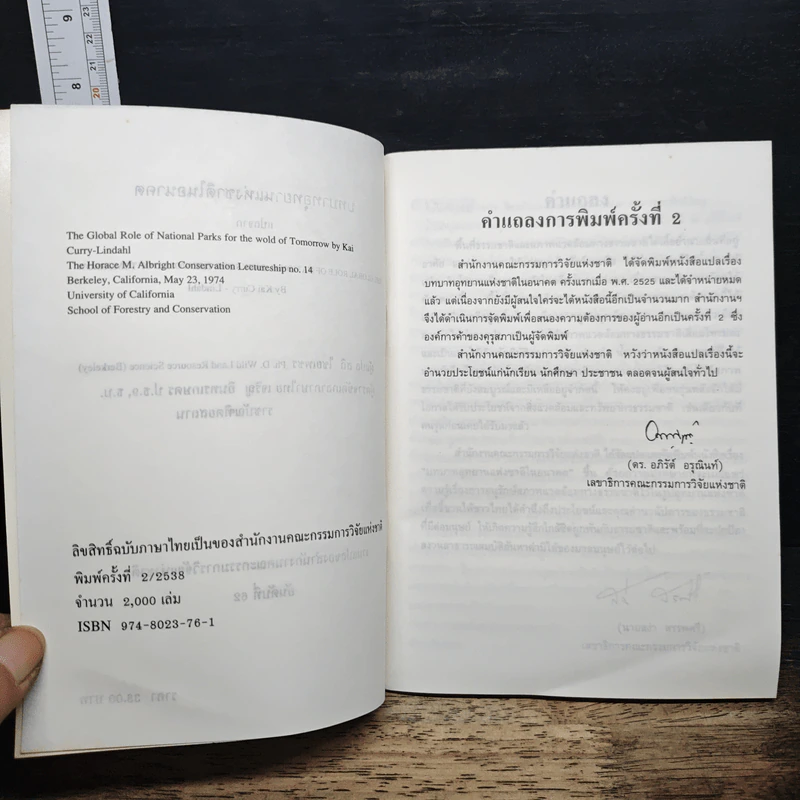 The Global Role of National Parks for the wold of Tomorrow by Kai
Curry-Lindahl
The Horace M. Albright Conservation Lectureship no. 14
Berkeley, California, May 23, 1974
University of California
School of Forestry and Conservation
ลิขสิทธิ์ฉบับภาษาไทยเป็นของสำนักงานคณะกรรมการวิจัยแห่งชาติ
พิมพ์ครั้งที่ 2/2538
จำนวน 2,000 เล่ม
ISBN 974-8023-76-1
คำแถลงการพิมพ์ครั้งที่ 2
สำนักงานคณะกรรมการวิจัยแห่งชาติ ได้จัดพิมพ์หนังสือแปลเรื่อง
บทบาทอุทยานแห่งชาติในอนาคต ครั้งแรกเมื่อ พ.ศ. 2525 และได้จำหน่ายหมด
แล้ว แต่เนื่องจากยังมีผู้สนใจใคร่จะได้หนังสือนี้อีกเป็นจำนวนมาก สำนักงานฯ
จึงได้ดำเนินการจัดพิมพ์เพื่อสนองความต้องการของผู้อ่านอีกเป็นครั้งที่ 2 ซึ่ง
องค์การค้าของคุรุสภาเป็นผู้จัดพิมพ์
สำนักงานคณะกรรมการวิจัยแห่งชาติ หวังว่าหนังสือแปลเรื่องนี้จะ
อำนวยประโยชน์แก่นักเรียน นักศึกษา ประชาชน ตลอดจนผู้สนใจทั่วไป
(ดร. อภิรัต อรุณินท์)
เลขาธิการคณะกรรมการวิจัยแห่งชาติ
9
8
23
22
21
20